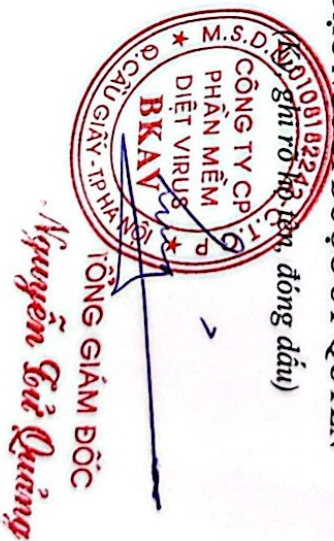 (Ký, ghi rõ họ tên, đóng dấu)
M.S.D.N:
C.T.C.P
CÔNG TY CP
PHẦN MỀM
DIỆT VIRUS
BKAV
Q.CẦU GIẤY - T.P HÀ NỘI
TỔNG GIÁM ĐỐC
Nguyễn Tử Quảng